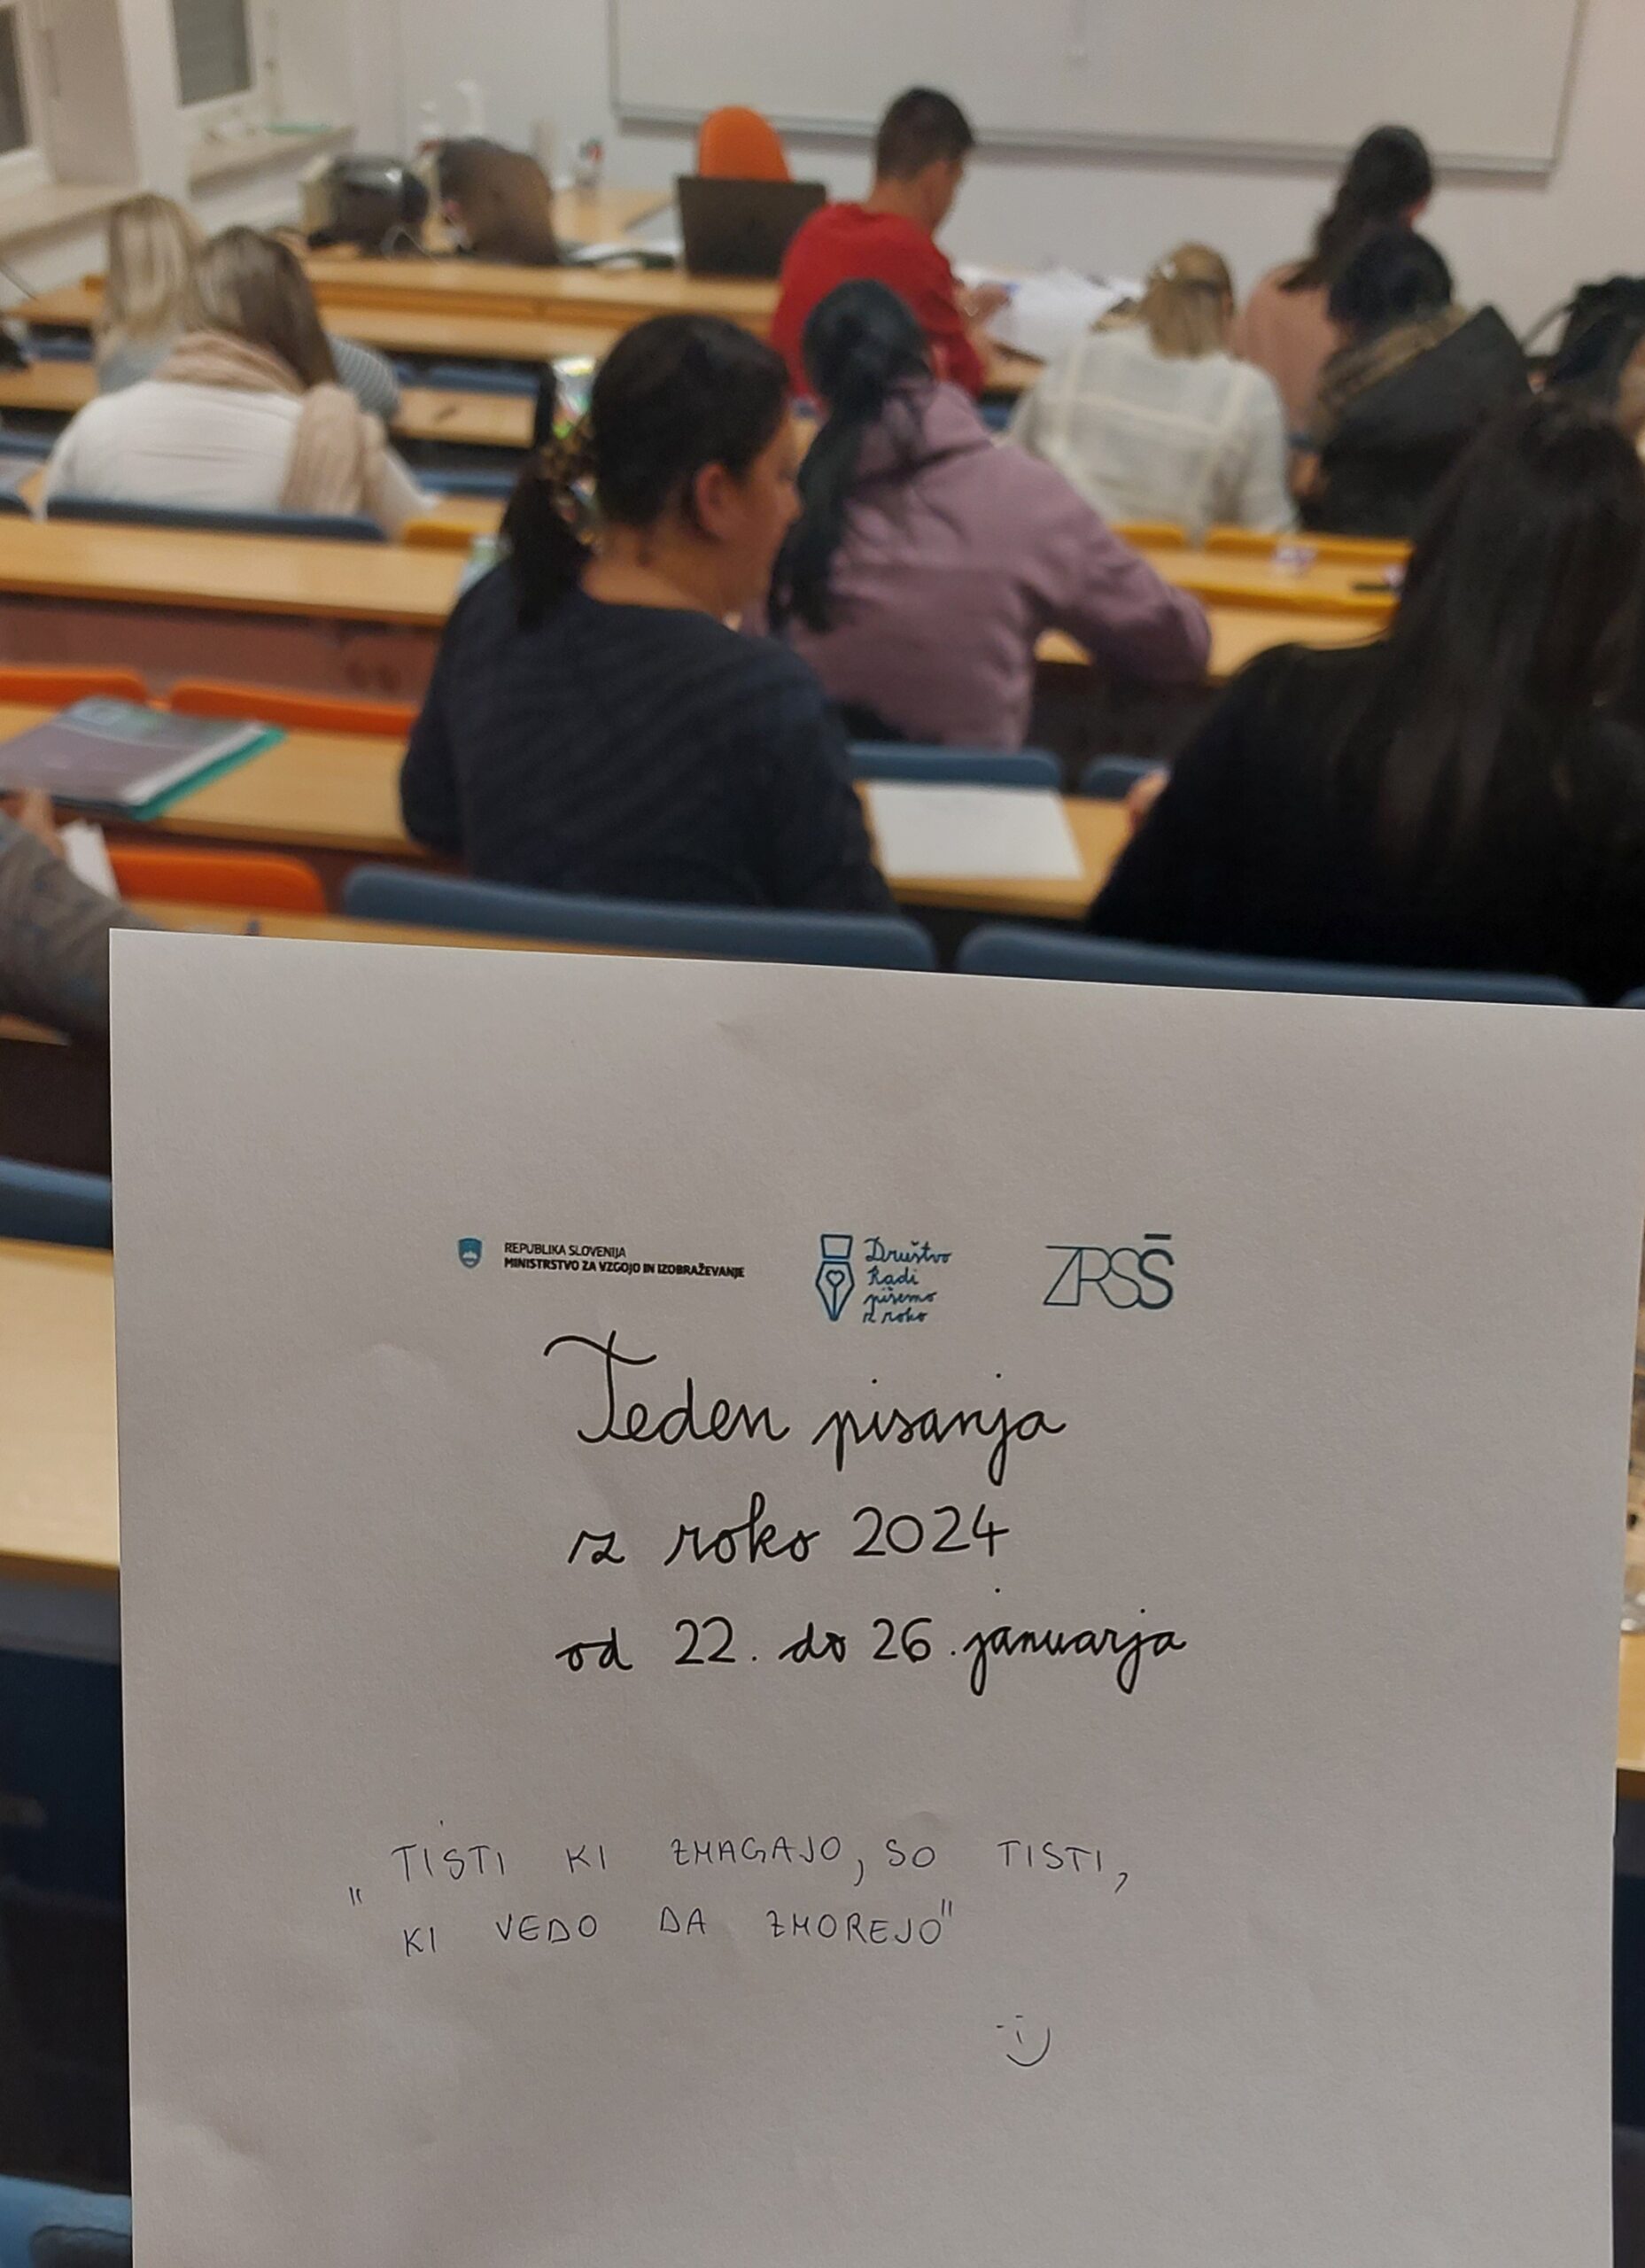 REPUBLIKA SLOVENIJA
MINISTRSTVO ZA VZGOJO IN IZOBRAŽEVANJE
Društvo
Radi
pišemo
z roko
ZRSŠ
Teden pisanja
z roko 2024
od 22. do 26. januarja
„TISTI KI ZMAGAJO, SO TISTI,
KI VEDO DA ZMOREJO"